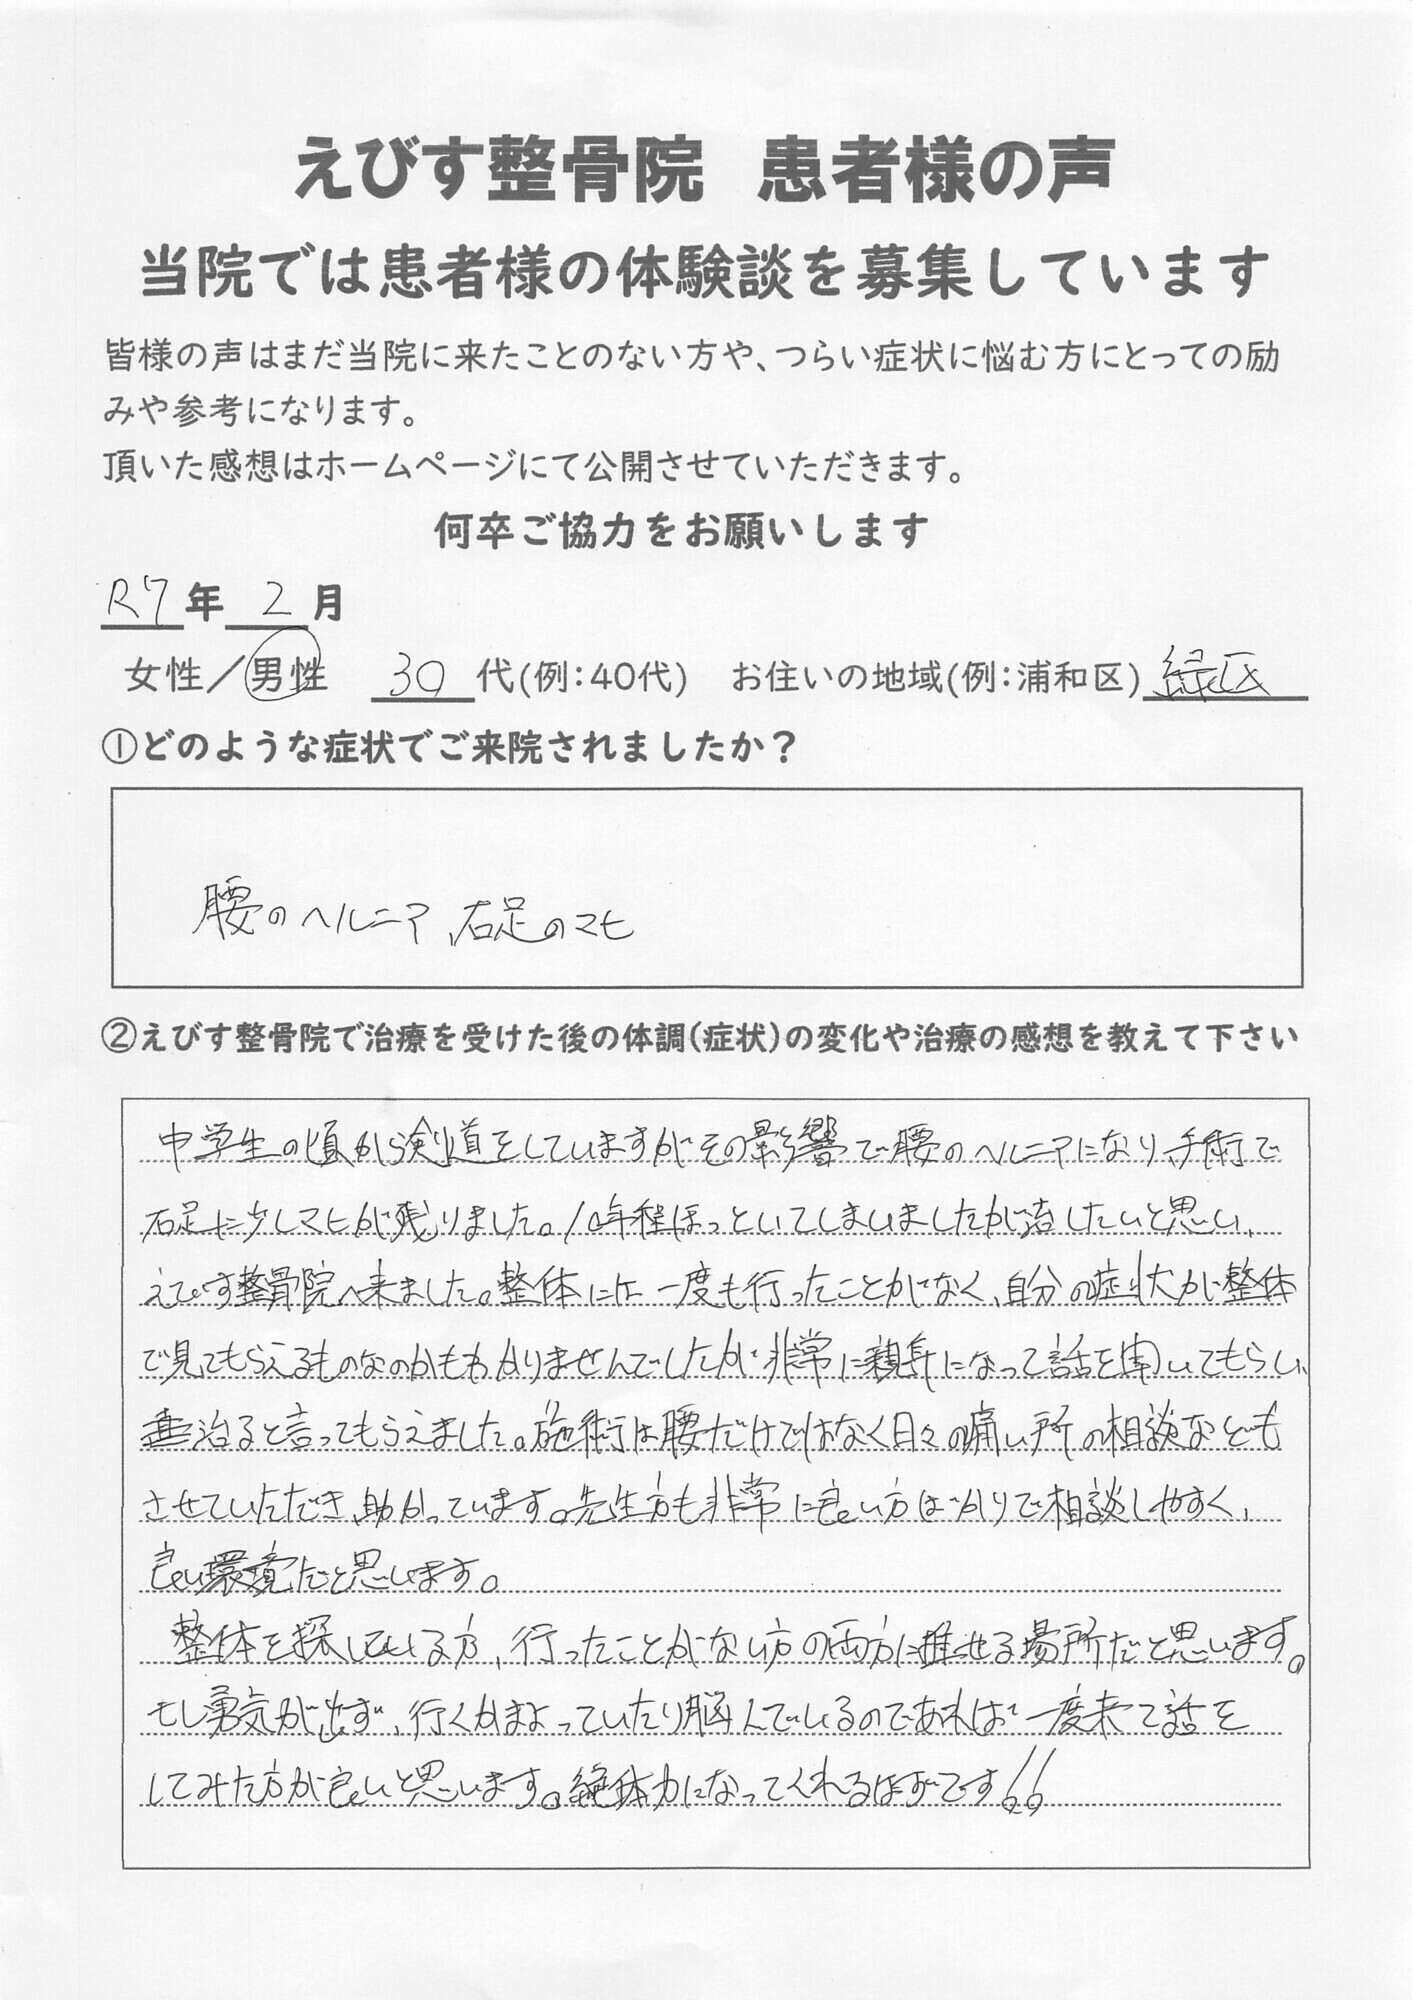 えびす整骨院　患者様の声
当院では患者様の体験談を募集しています
皆様の声はまだ当院に来たことのない方や、つらい症状に悩む方にとっての励
みや参考になります。
頂いた感想はホームページにて公開させていただきます。
何卒ご協力をお願いします
R7年 2月
女性／男性　30代(例：40代)　お住いの地域(例：浦和区) 緑区
①どのような症状でご来院されましたか？
腰のヘルニア、右足のマヒ
②えびす整骨院で治療を受けた後の体調(症状)の変化や治療の感想を教えて下さい
中学生の頃から剣道をしていますがその影響で腰のヘルニアになり、手術で
右足に少しマヒが残りました。10年程ほっといてしまいましたが治したいと思い、
えびす整骨院へ来ました。整体には一度も行ったことがなく、自分の症状が整体
で見てもらえるものなのかもわかりませんでしたが非常に親身になって話を聞いてもらい、
治ると言ってもらえました。施術は腰だけではなく日々の痛い所の相談なども
させていただき、助かっています。先生方も非常に良い方ばかりで相談しやすく、
良い環境だと思います。
整体を探している方、行ったことがない方の両方に推せる場所だと思います。
もし勇気が出ず、行くかまよっていたり悩んでいるのであれば一度来て話を
してみた方が良いと思います。絶対力になってくれるはずです!!